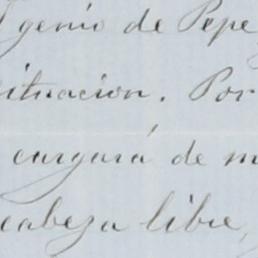 genio de Pepe
situacion. Por
cargará de m
cabeza libre,